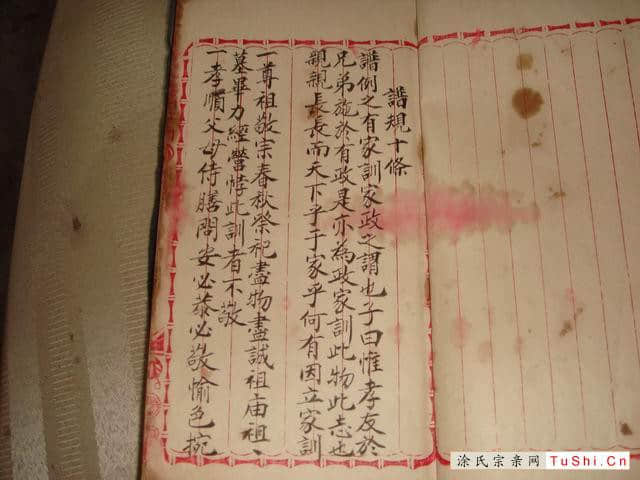 譜規十條
譜例之有家訓家政之謂也子曰惟孝友於
兄弟施於有政是亦為政家訓此物此志也
親親長長而天下乎于家乎何有因立家訓
一尊祖敬宗春秋祭祀盡物盡誠祖庙祖、
墓畢力經營悖此訓者不敬
一孝順父母侍膳問安必恭必敬愉色掜
涂氏宗亲网 TuShi.Cn